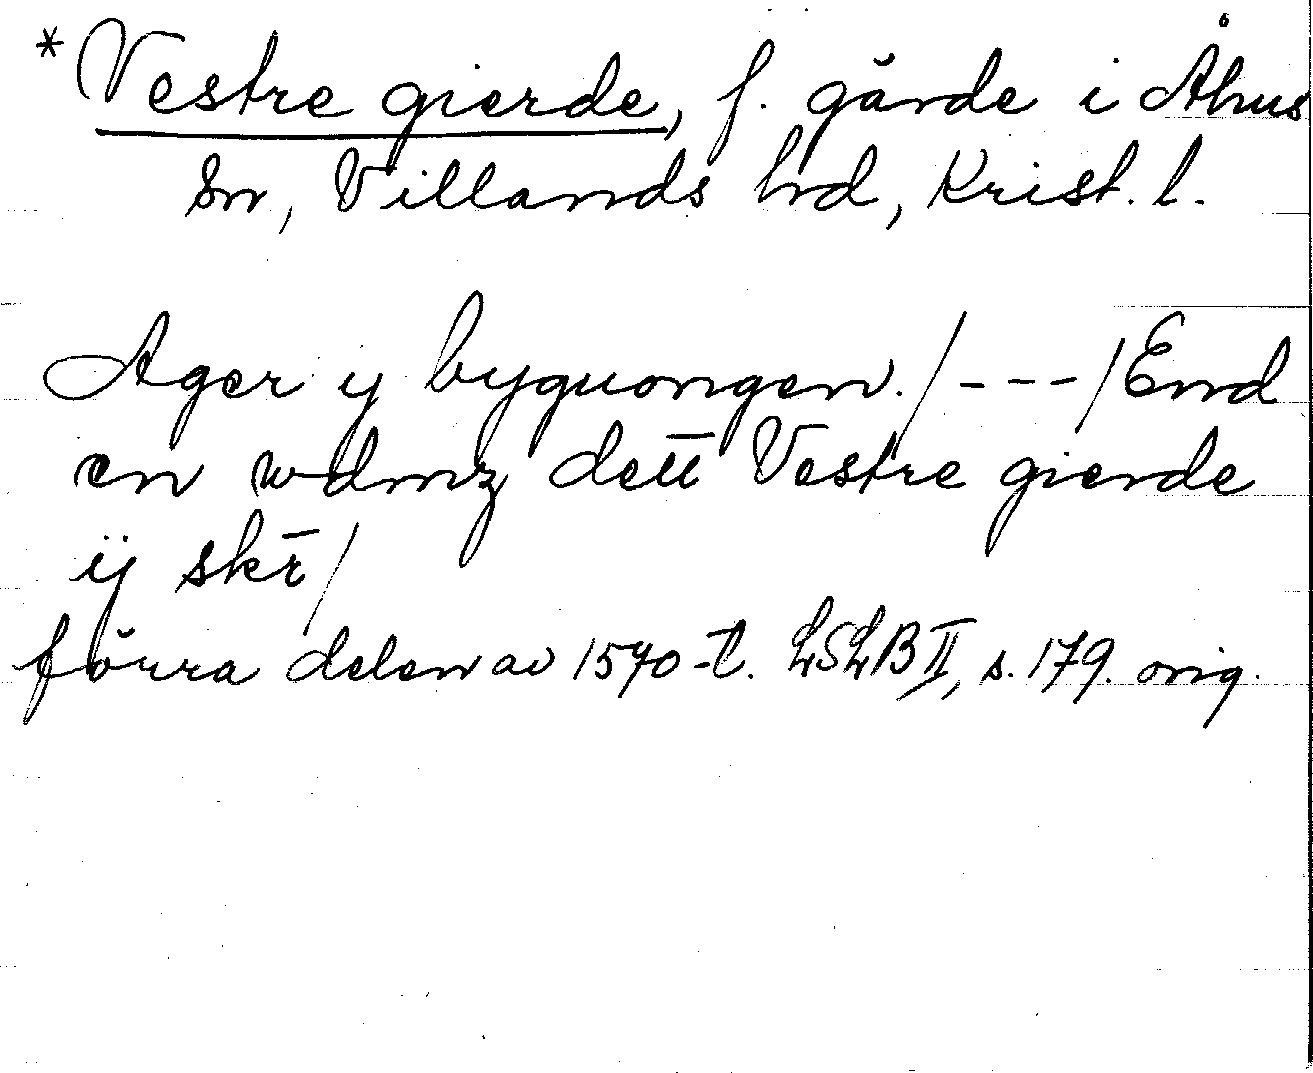 *Vestre gierde, f. gärde i Åhus
sn, Villands hd, Krist. l.
Ager y byguongen./ - - - /End
en wdmz dett Vestre gierde
ÿ skr̄/
förra delen av 1570-t. LSLB II, s. 179. orig.